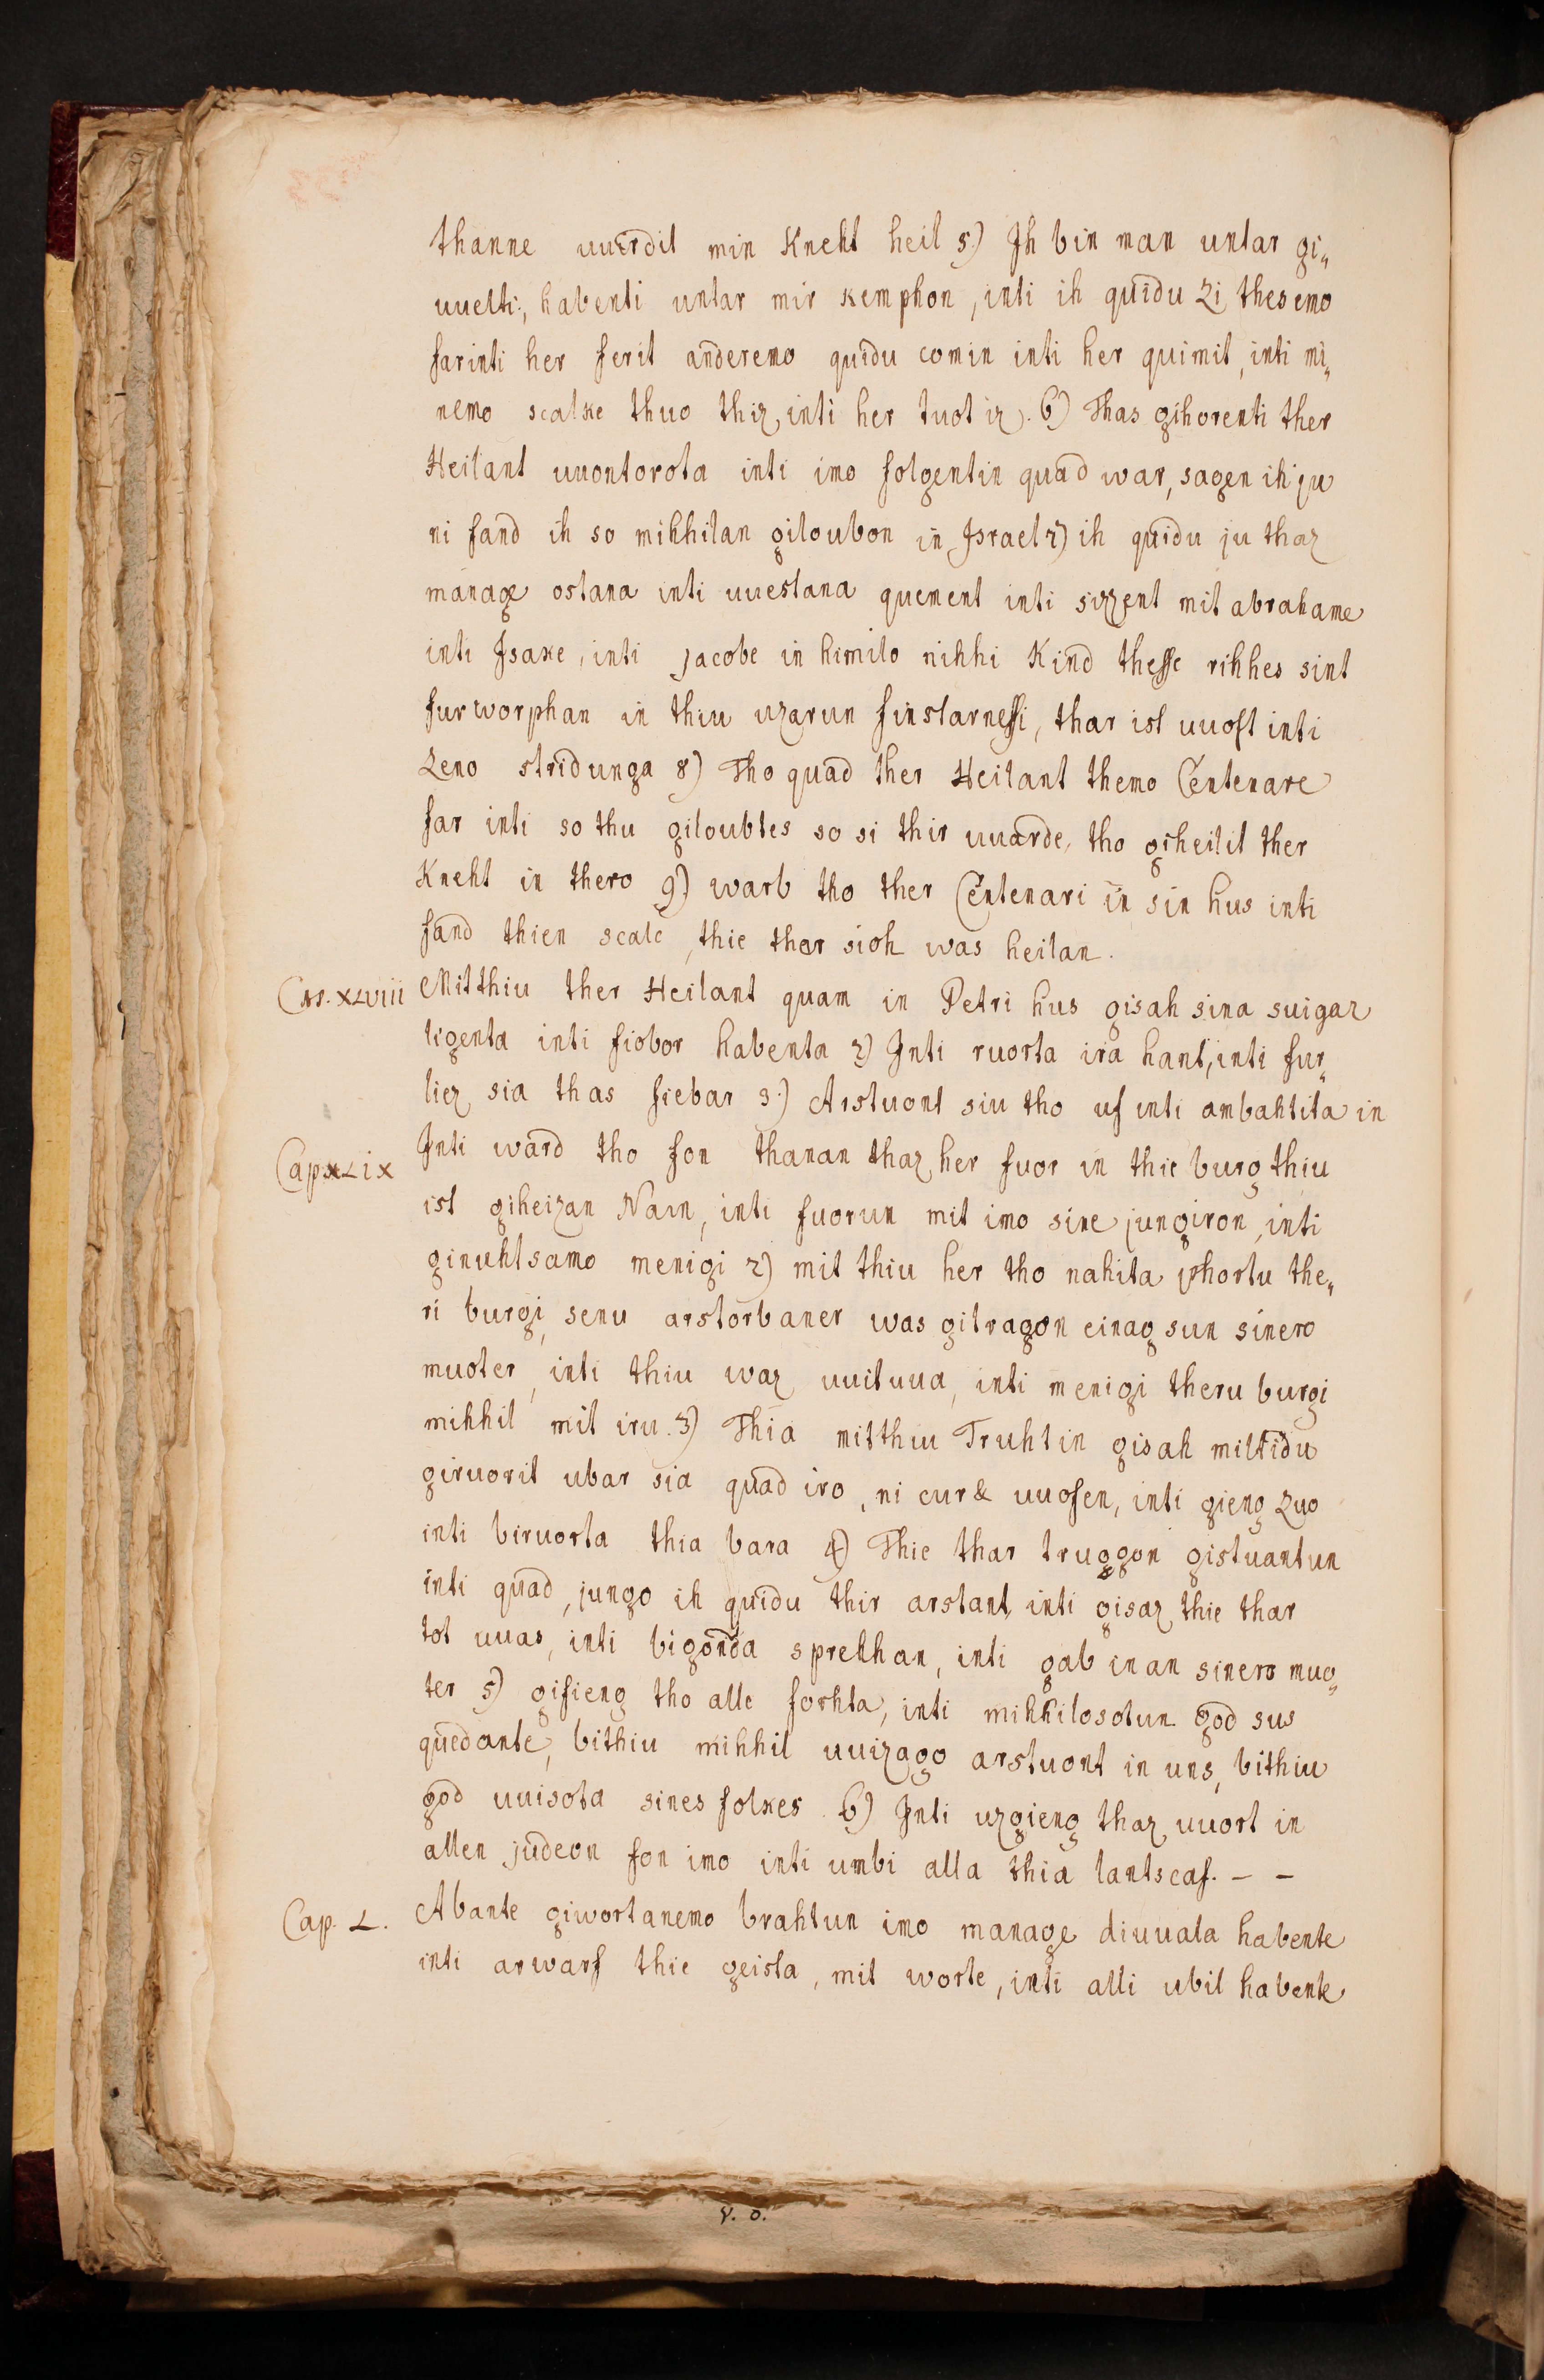 thanne uuirdit min Kneht heil 5.) Ih bin man untar gi„
uuelti:, habenti untar mir kemphon, inti ih quidu zi thesemo
farinti her ferit anderemo quidu comin inti her quimit, inti mi„
nemo scalke thuo thiz, inti her tuot iz). 6) Thas gihorenti ther
Heilant uuontorota inti imo folgentin quad war, sagen ih ju
ni fand ih so mihhilan giloubon in Israel 7) ih quidu ju thaz
manage ostana inti uuestana quement inti sizzent mit abrahame
inti Isake, inti jacobe in himilo rihhi Kind thesse rihhes sint
furworphan in thiu uzarun finstarnessi, thar ist uuoft inti
zeno stridunga 8) Tho quad ther Heilant themo Centenare
far inti so thu giloubtes so si thir uuarde, tho giheilit ther
Kneht in thero 9) warb tho ther Centenari in sin hus inti
fand thien scalc, thie thar sioh was heilan.
Cap. XLviii Mitthiu ther Heilant quam in Petri hus gisah sina suigar
ligenta inti fiobor habenta 2) Inti ruorta ira hant, inti fur„
liez sia thas fiebar 3.) Arstuont siu tho uf inti ambahtita in
Cap XLix Inti ward tho fon thanan thaz her fuor in thie burg thiu
ist giheizan Naın, inti fuorun mit imo sine jungiron, inti
ginuhtsamo menigi 2) mit thiu her tho nahita phortu the„
ri burgi, senu arstorbaner was gitragon einag sun sinero
muoter, inti thiu waz uuituua, inti menigi theru burgi
mihhil mit iru. 3) Thia mitthiu Truhtin gisah miltidu
giruorit ubar sia quad iro, ni cur& uuofen, inti gieng zuo
inti biruorta thia bara 4) Thie thar truggon gistuantun
inti quad, jungo ih quidu thir arstant inti gisaz thie thar
tot uuas, inti bigonda sprehhan, inti gab inan sinero muo„
ter 5) gifieng tho alle forhta, inti mihhilosotun god sus
quedante, bithiu mihhil uuizago arstuont in uns, bithiu
god uuisota sines folkes. 6) Inti uzgieng thaz uuort in
allen judeon fon imo inti umbi alla thia lantscaf. – –
Cap. L. Abante giwortanemo brahtun imo manage diuuala habente
inti arwarf thie geista, mit worte, inti alli ubil habente
v. o.